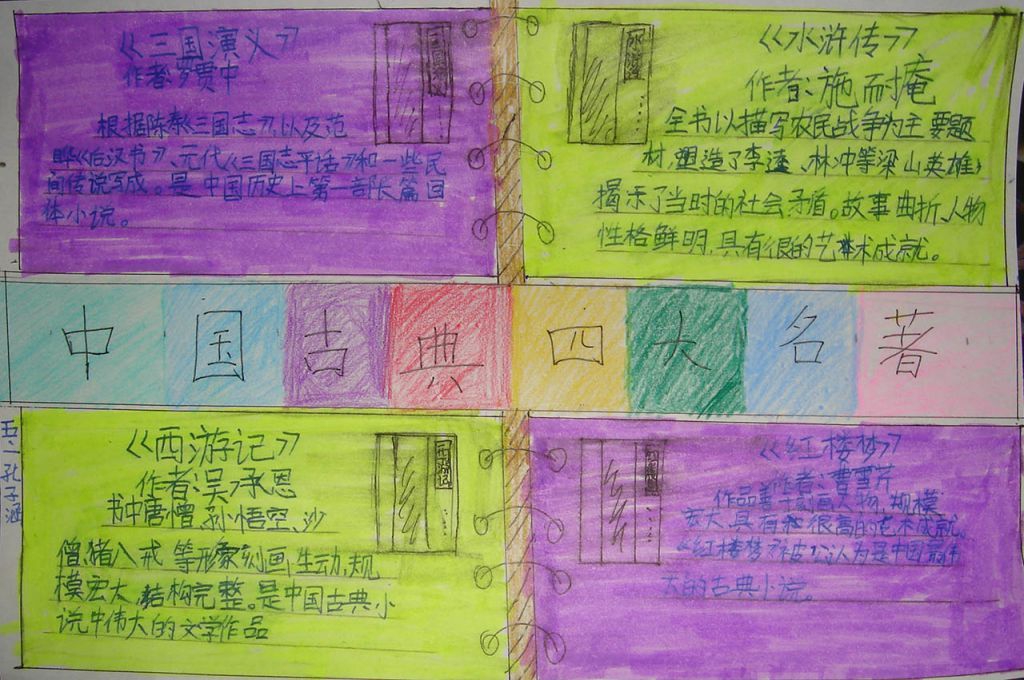 《三国演义》
作者:罗贯中
根据陈寿《三国志》,以及范
晔《后汉书》、元代《三国志平话》和一些民
间传说写成。是中国历史上第一部长篇回
体小说。
《水浒传》
作者:施耐庵
全书以描写农民战争为主要题
材,塑造了李逵、林冲等梁山英雄,
揭示了当时的社会矛盾。故事曲折、人物
性格鲜明,具有很的艺术成就。
水浒
中国古典四大名著
五.二孔子涵
《西游记》
作者:吴承恩
书中唐僧、孙悟空、沙
僧、猪八戒等形象刻画生动,规
模宏大,结构完整。是中国古典小
说中伟大的文学作品
西游记
《红楼梦》
作者:曹雪芹
作品善于刻画人物,规模
宏大,具有很高的艺术成就。
《红楼梦》被公认为是中国最伟
大的古典小说。